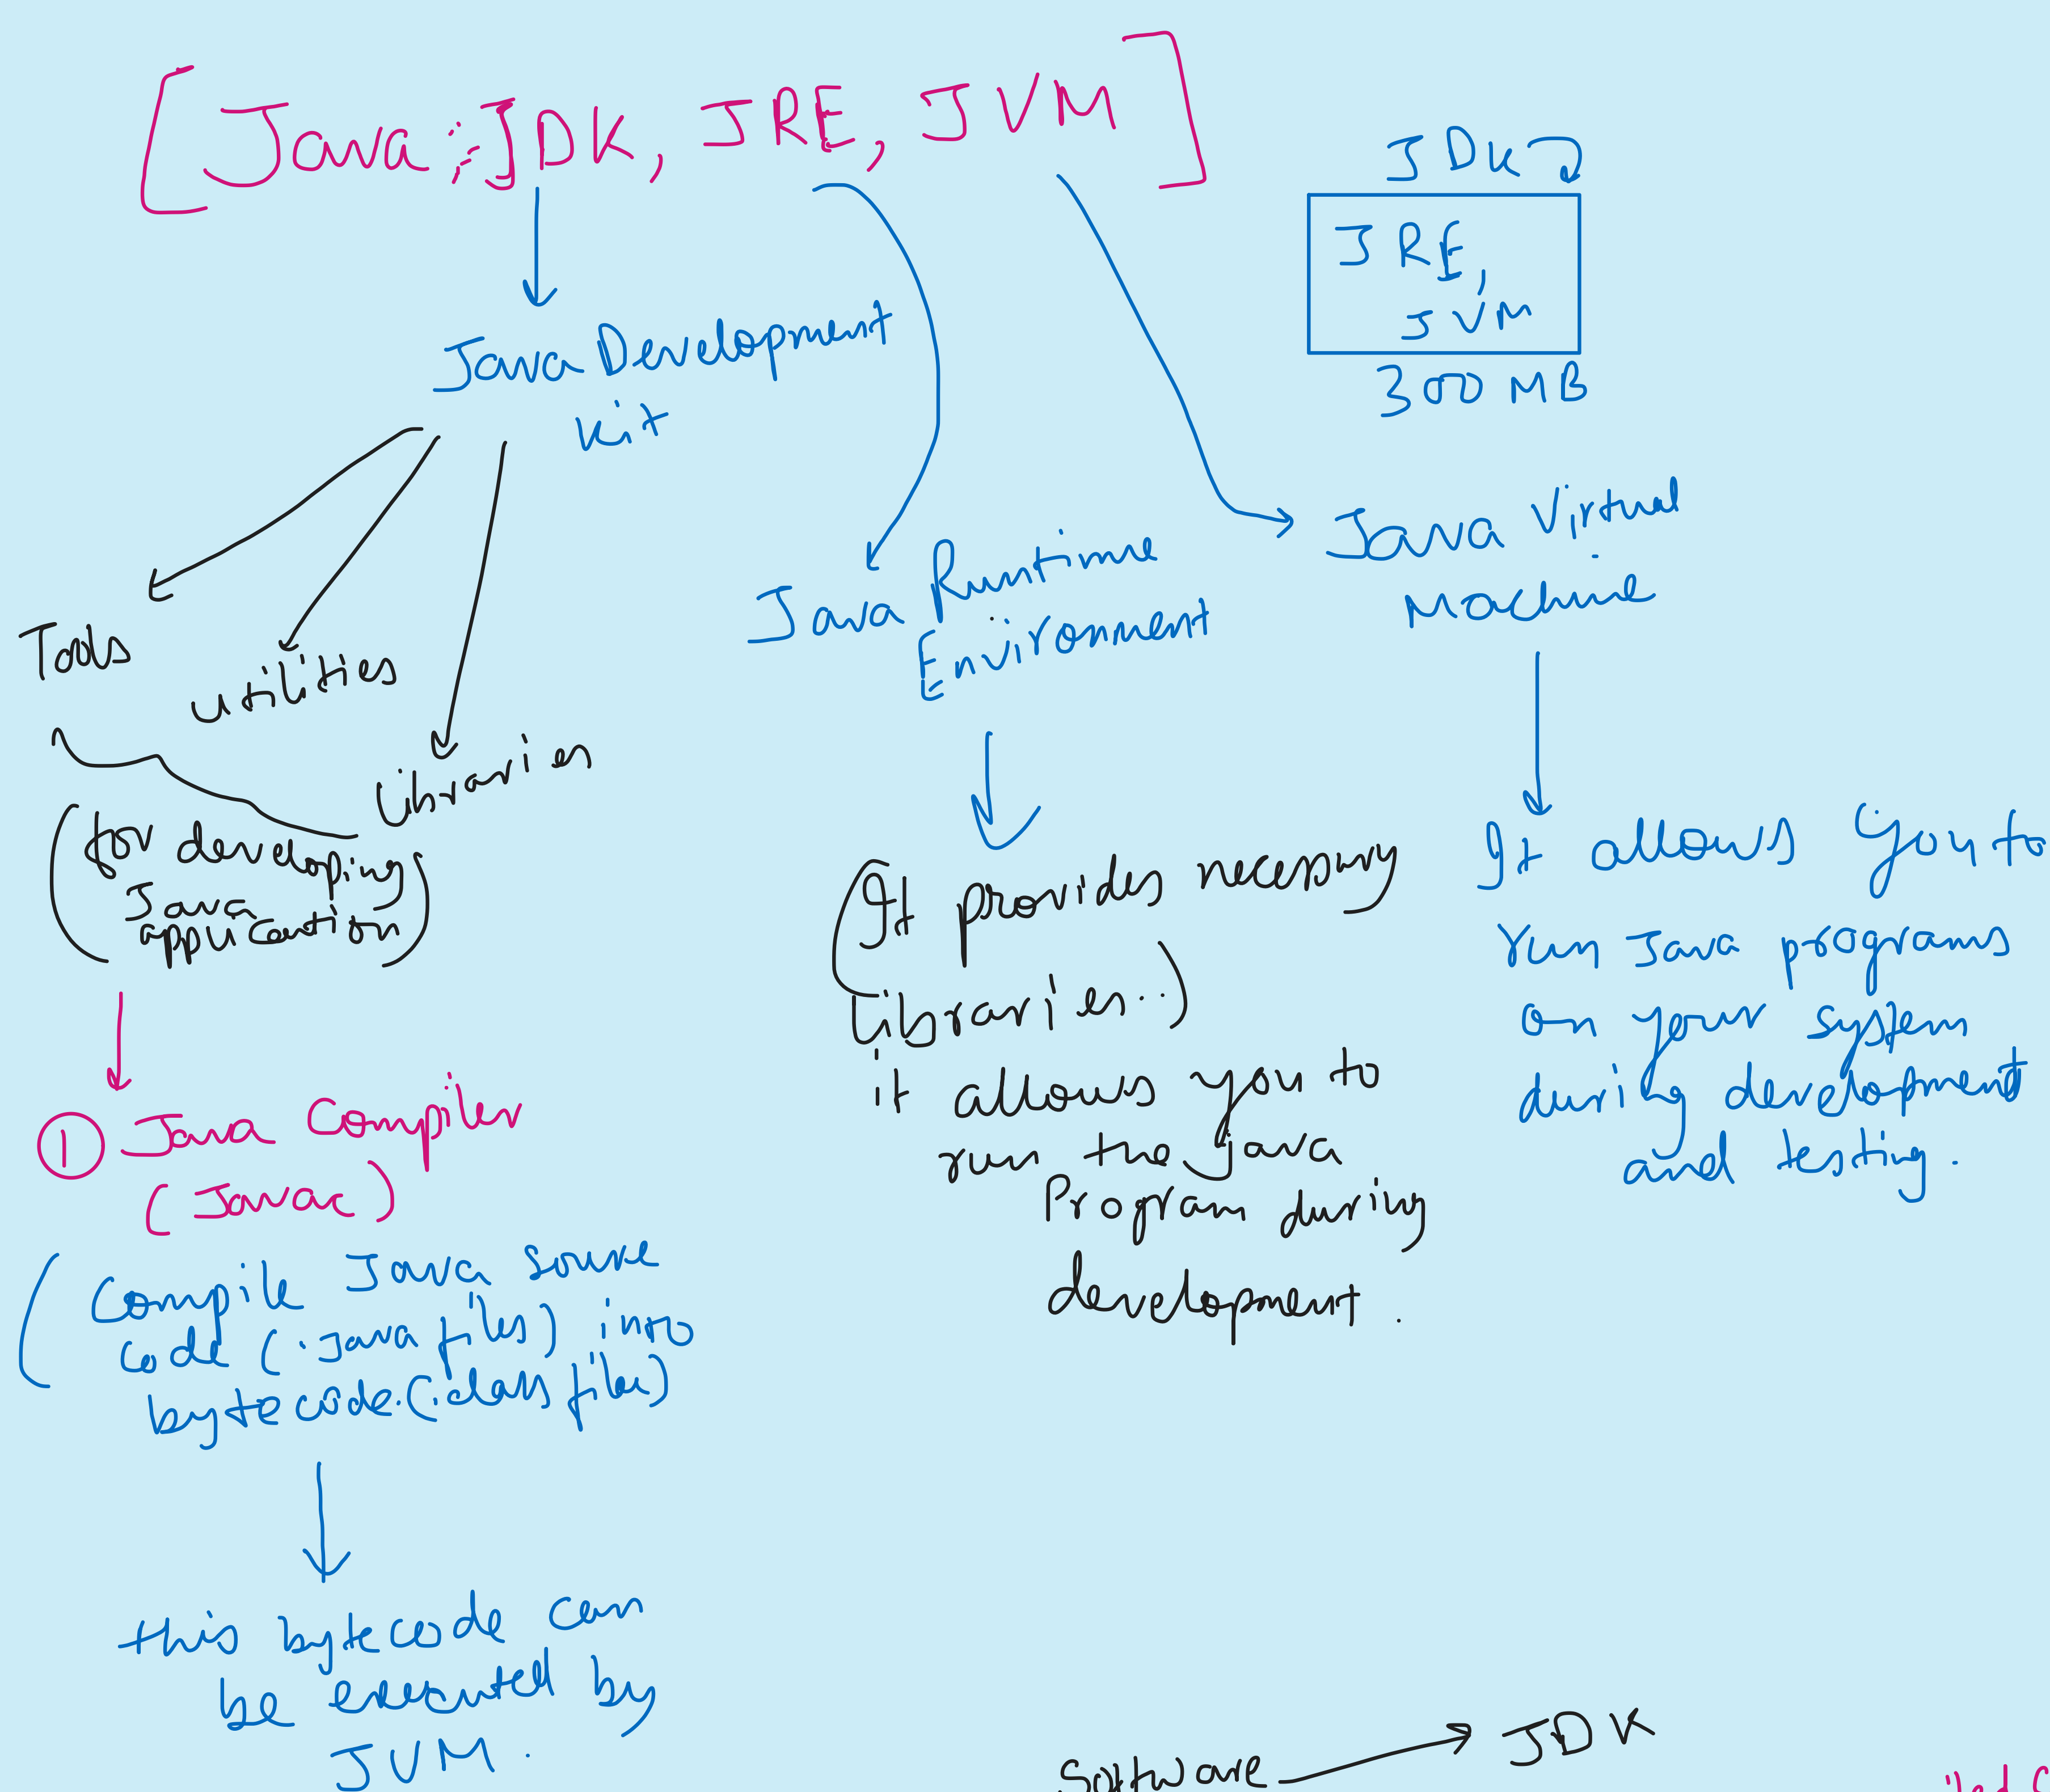 [Java : JDK, JRE, JVM]
JDK
JRE,
JVM
300 MB
Java Development
Kit
Tools
utilities
Libraries
(for developing
Java
application)
① Java Compiler
(Javac)
(Compile Java source
code (.java files) into
bytecode.(.class files)
this bytecode can
be executed by
JVM.
Java Runtime
Environment
(It provides necessary
Libraries..)
it allows you to
run the java
Program during
development.
Java Virtual
Machine
It allows you to
run Java programs
on your system
during development
and testing.
Software → JDK